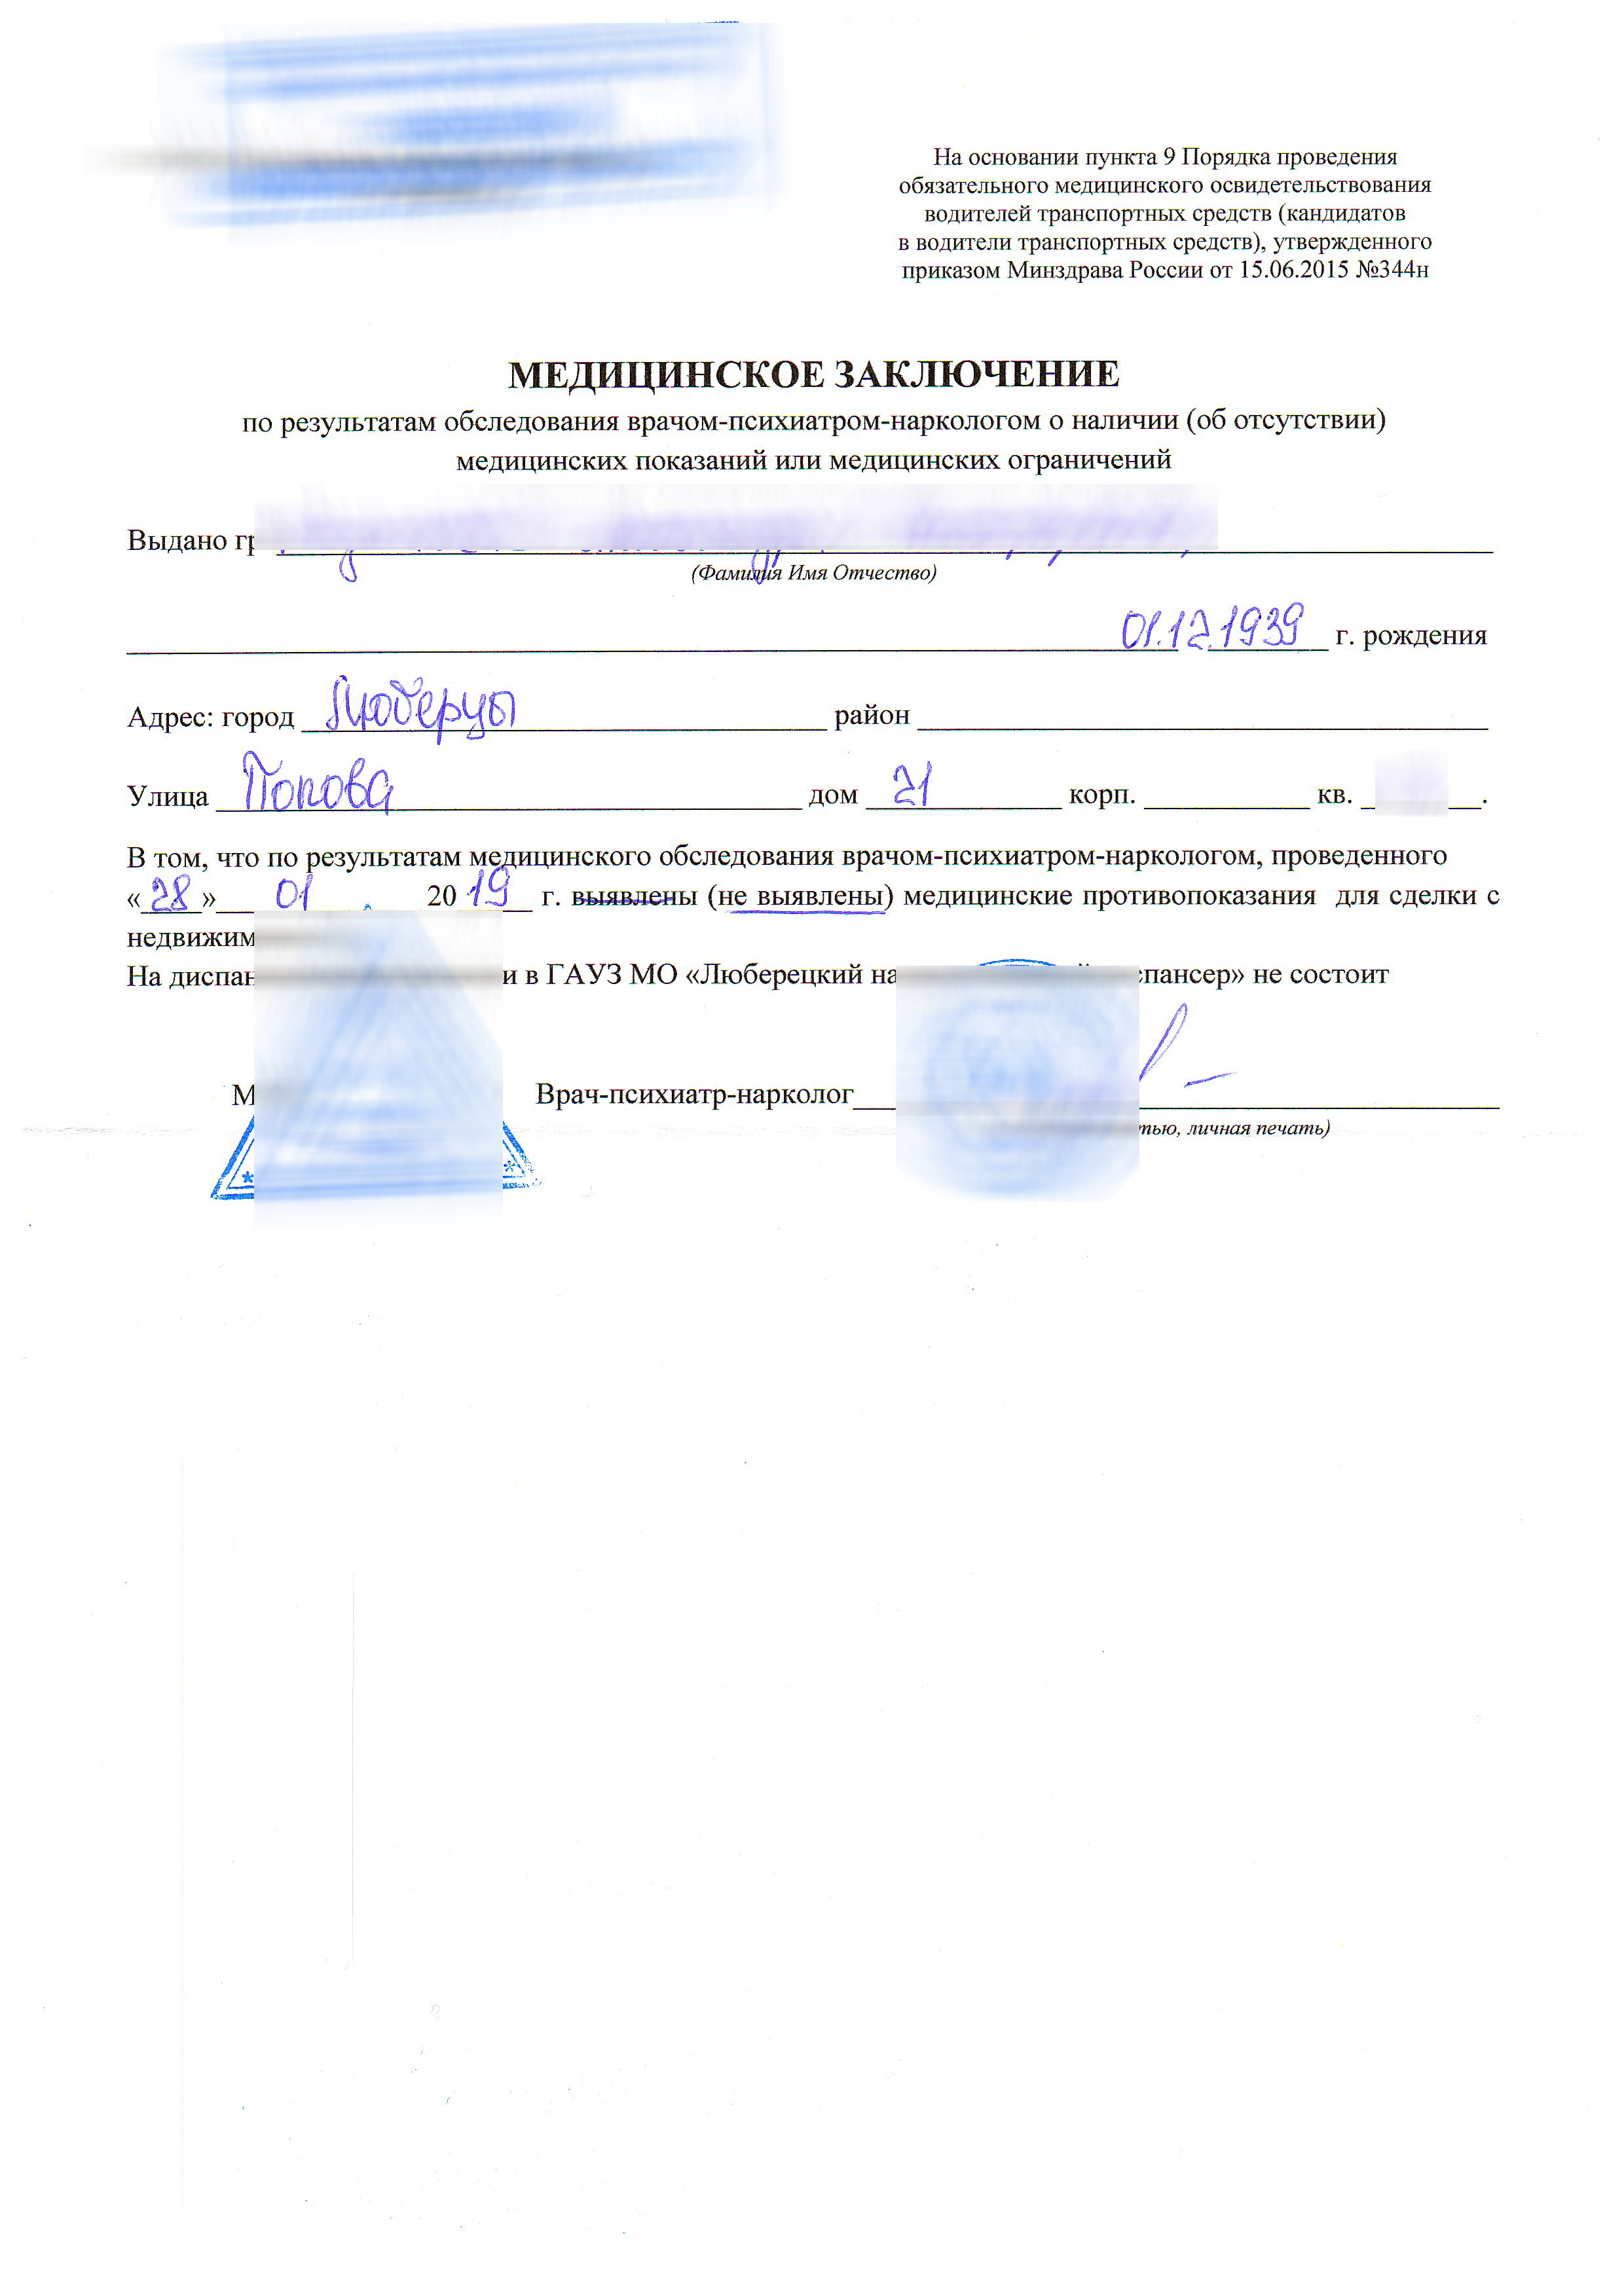 На основании пункта 9 Порядка проведения
обязательного медицинского освидетельствования
водителей транспортных средств (кандидатов
в водители транспортных средств), утвержденного
приказом Минздрава России от 15.06.2015 №344н
МЕДИЦИНСКОЕ ЗАКЛЮЧЕНИЕ
по результатам обследования врачом-психиатром-наркологом о наличии (об отсутствии)
медицинских показаний или медицинских ограничений
Выдано
(Фамилия Имя Отчество)
01.12.1939 г. рождения
Адрес: город Люберцы район
Улица Попова дом 21 корп. кв.
В том, что по результатам медицинского обследования врачом-психиатром-наркологом, проведенного
«28» 01 2019 г. выявлены (не выявлены) медицинские противопоказания для сделки с
На и в ГАУЗ МО «Люберецкий не состоит
Врач-психиатр-нарколог
личная печать)